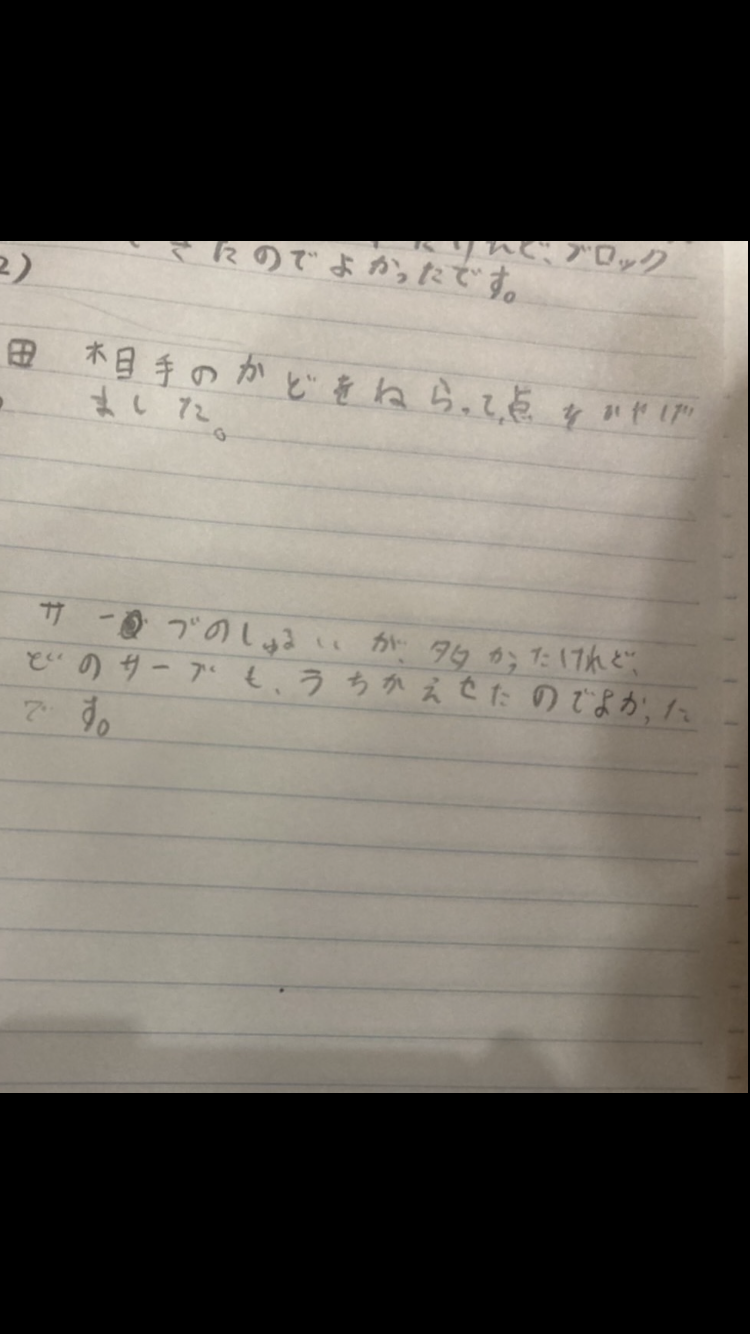 けれど、ブロック
きたのでよかったです。
2)
田 相手のかどをねらって、点をかせげ
ました。
サーブのしゅるいが、多かったけれど、
どのサーブも、うちかえせたのでよかった
です。